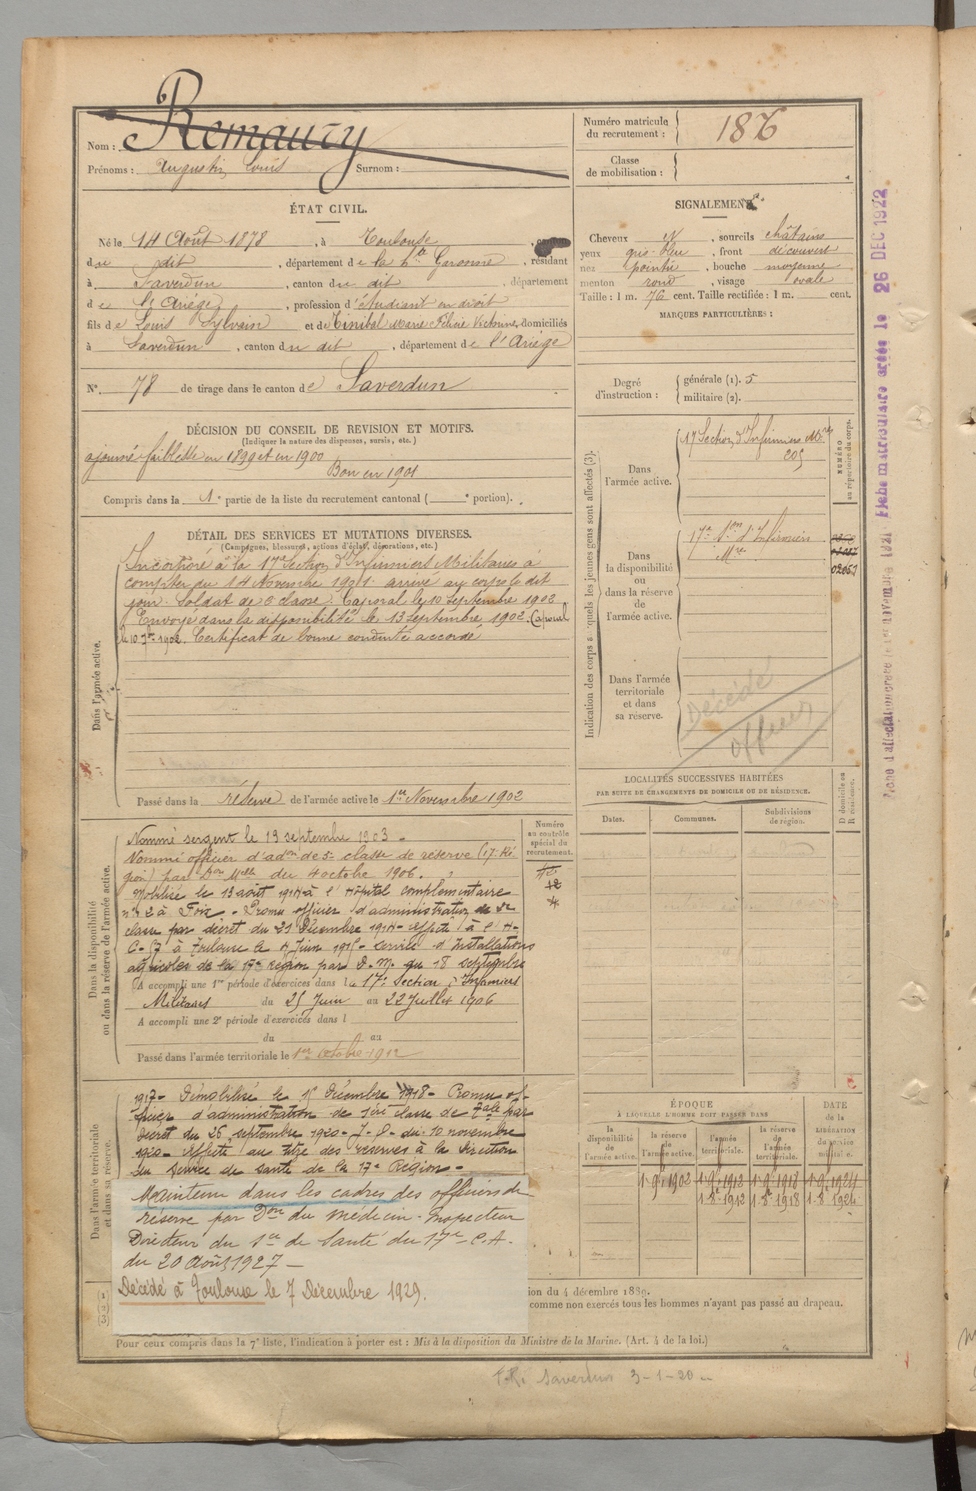 Nom : Remaury
Prénoms : Augustin, Louis Surnom :
Numéro matricule
du recrutement : 1876
Classe
de mobilisation :
ÉTAT CIVIL.
Né le 14 Août 1878, à Toulouse, canton
du dit, département de la Hte Garonne, résidant
à Saverdun, canton du dit, département
de l'Ariège, profession d'étudiant en droit
fils de Louis Sylvain et de Tinibal Marie Félicie Victorine, domiciliés
à Saverdun, canton du dit, département de l'Ariège
N° 78 de tirage dans le canton de Saverdun
SIGNALEMENT.
Cheveux , sourcils châtains
yeux gris-bleu, front découvert
nez pointu, bouche moyenne
menton rond, visage ovale
Taille : 1 m. 76 cent. Taille rectifiée : 1 m. cent.
MARQUES PARTICULIÈRES :
Degré
d'instruction :
générale (1). 5
militaire (2).
DÉCISION DU CONSEIL DE REVISION ET MOTIFS.
(Indiquer la nature des dispenses, sursis, etc.)
ajourné faiblesse en 1899 et en 1900
Bon en 1901
Compris dans la 1e partie de la liste du recrutement cantonal ( e portion).
DÉTAIL DES SERVICES ET MUTATIONS DIVERSES.
(Campagnes, blessures, actions d'éclat, décorations, etc.)
Dans l'armée active.
Incorporé à la 17e Section d'Infirmiers Militaires à
compter du 14 Novembre 1901. arrivé au corps le dit
jour. Soldat de 2e classe. Caporal le 10 Septembre 1902
Envoyé dans la disponibilité le 13 Septembre 1902. Caporal
le 10 7bre 1902. Certificat de bonne conduite accordé
Passé dans la réserve de l'armée active le 1er Novembre 1902
Dans la disponibilité
ou dans la réserve de l'armée active.
Numéro
au contrôle
spécial du
recrutement.
Nommé sergent le 19 septembre 1903.
Nommé officier d'adon de 3e classe de réserve (17e Ré
gion) par Don Mlle du 4 octobre 1906.
Mobilisé le 13 août 1914 à l'Hôpital complémentaire
n° 2 à Foix. Promu officier d'administration de 2e
classe par décret du 21 Décembre 1914. Affecté à l'H.
C. 7 à Toulouse le 4 Juin 1915. Service d'Installations
agricoles de la 17e Région par D.M. du 18 septembre
A accompli une 1re période d'exercices dans la 17e Section d'Infirmiers
Militaires du 25 Juin au 22 Juillet 1906
A accompli une 2e période d'exercices dans l
du au
Passé dans l'armée territoriale le 1er octobre 1912
Dans l'armée territoriale
et dans sa réserve.
1917. Démobilisé le 1er Décembre 1918. Promu of-
ficier d'administration de 1ère classe de Tale par
décret du 26 septembre 1920. J.O. du 10 novembre
1920. Affecté au titre des réserves à la Direction
du Service de santé de la 17e Région.
Maintenu dans les cadres des officiers de
réserve par Don du médecin-Inspecteur
Directeur du Sce de Santé du 17e C.A.
du 20 Août 1927
Décédé à Toulouse le 7 Décembre 1929.
(1)
(2)
(3)
ion du 4 décembre 1889.
comme non exercés tous les hommes n'ayant pas passé au drapeau.
Pour ceux compris dans la 7e liste, l'indication à porter est : Mis à la disposition du Ministre de la Marine. (Art. 4 de la loi.)
Indication des corps auxquels les jeunes gens sont affectés (3).
Dans
l'armée active.
17e Section d'Infirmiers Mres
NUMÉRO
au répertoire du corps.
Dans
la disponibilité
ou
dans la réserve
de
l'armée active.
17e Son d'Infirmiers
Mres
02057
Dans l'armée
territoriale
et dans
sa réserve.
Décédé
officier
LOCALITÉS SUCCESSIVES HABITÉES
PAR SUITE DE CHANGEMENTS DE DOMICILE OU DE RÉSIDENCE.
D domicile ou
R résidence.
Dates. Communes. Subdivisions
de région.
ÉPOQUE
À LAQUELLE L'HOMME DOIT PASSER DANS
DATE
de la
LIBÉRATION
du service
militaire.
la
disponibilité
de
l'armée active.
la réserve
de
l'armée active.
l'armée
territoriale.
la réserve
de
l'armée
territoriale.
1.9.1902 1.9.1912 1.9.1918 1.9.1924
1.8.1912 1.8.1918 1.8.1924
Saverdun 3-1-20
Fiche matriculaire créée le 26 DEC 1922